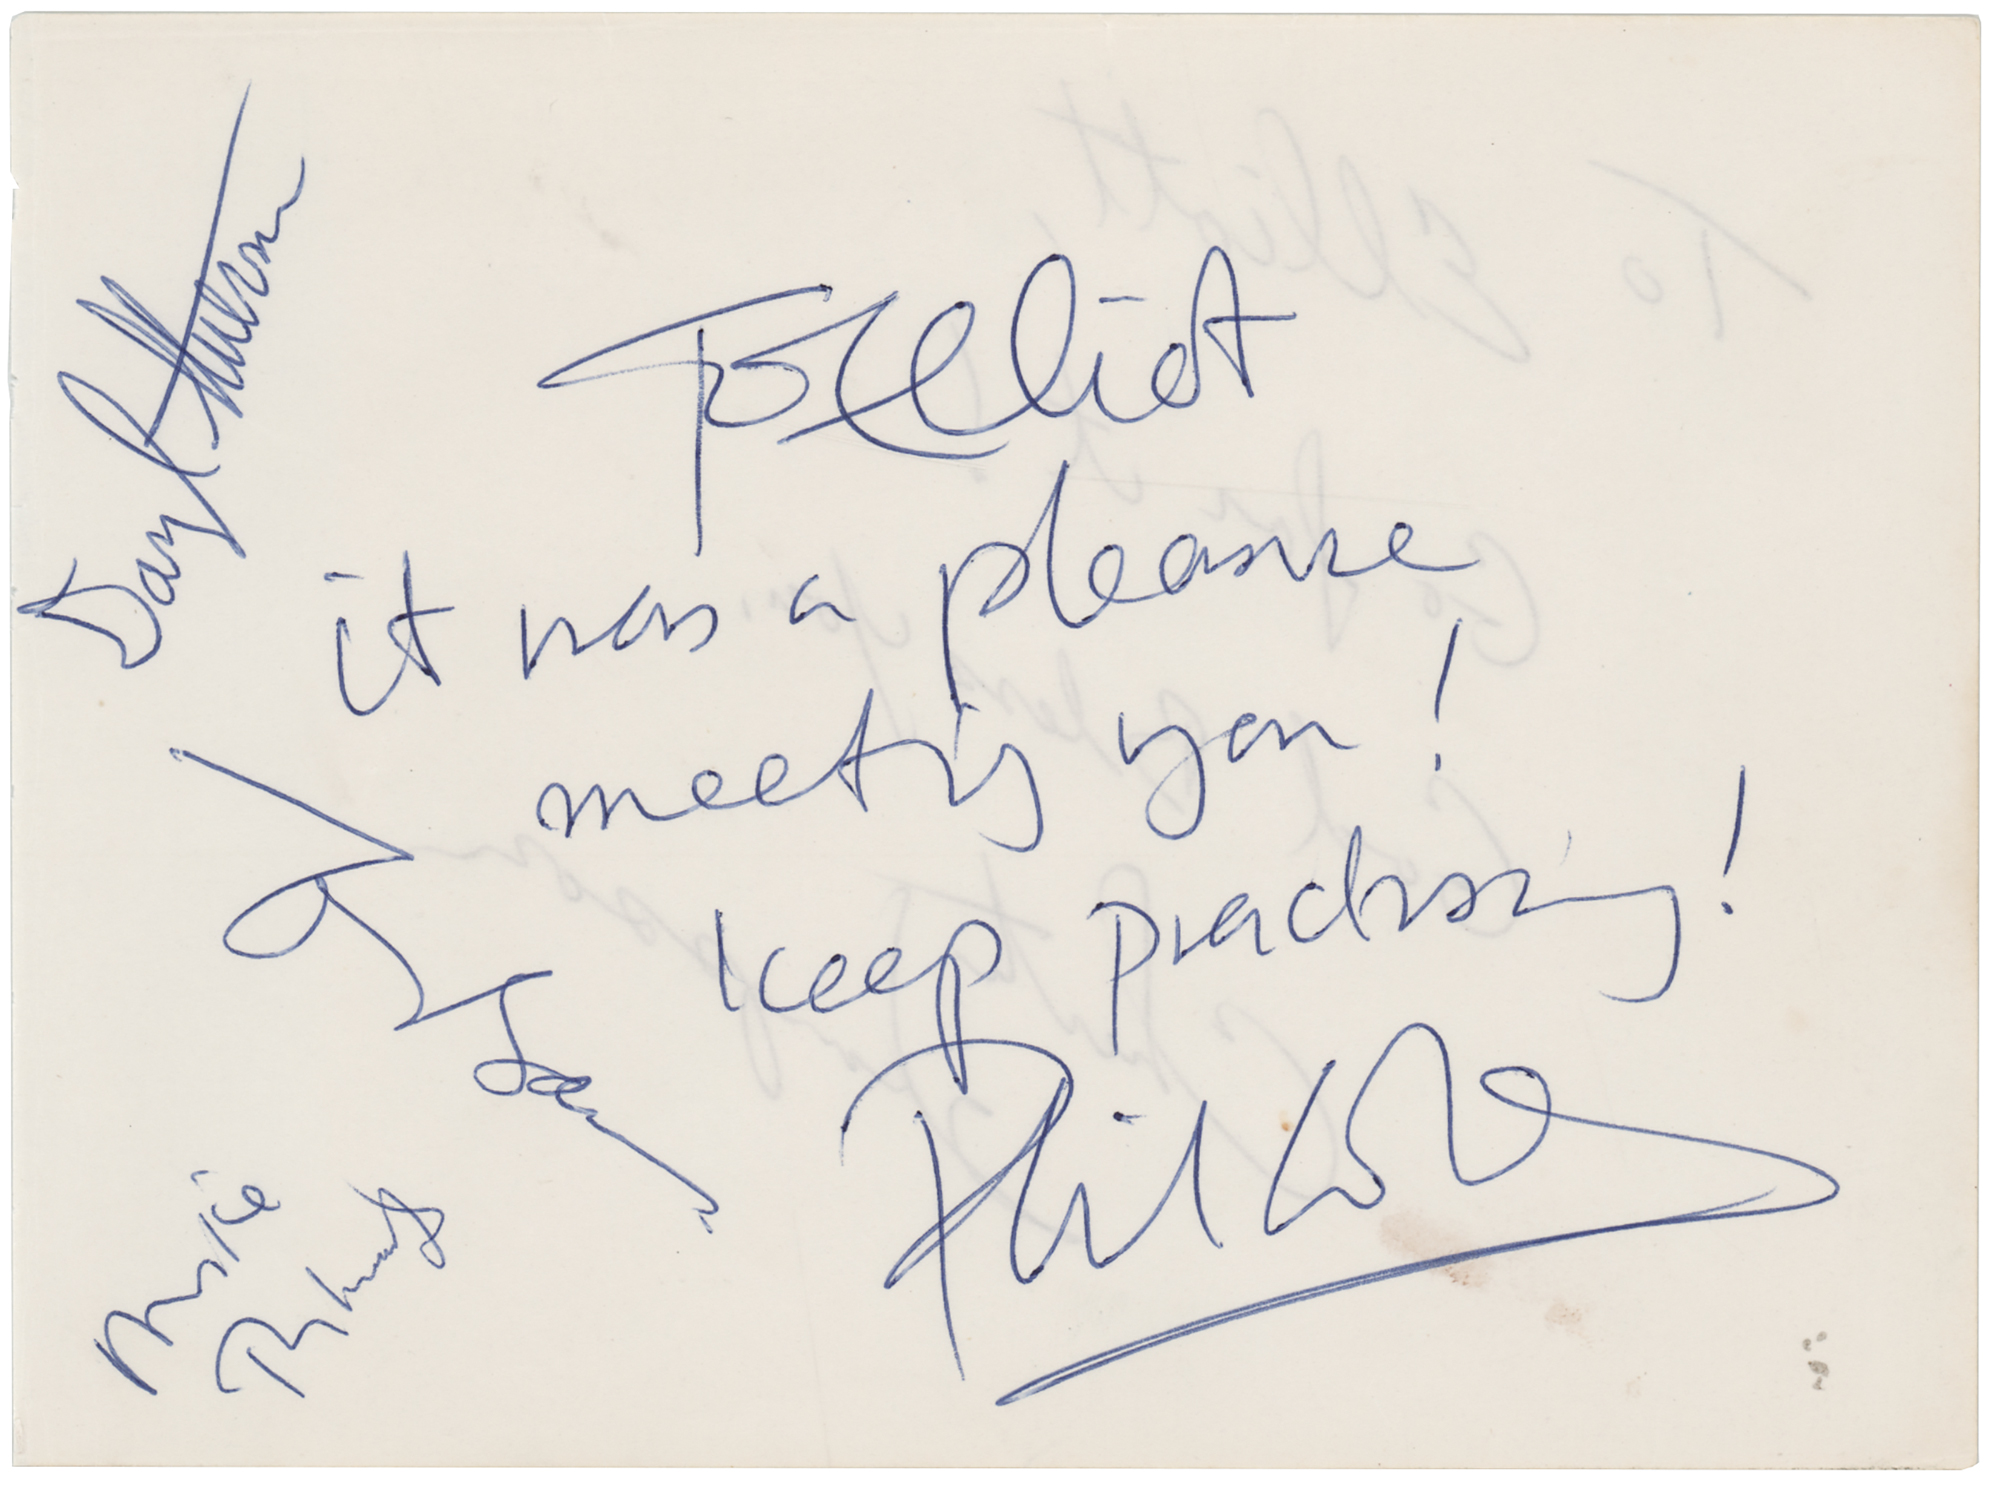 To Elliot
it was a pleasure
meeting you!
keep practising!
Phil Collins
Daryl Stuermer
Mike
Rutherford